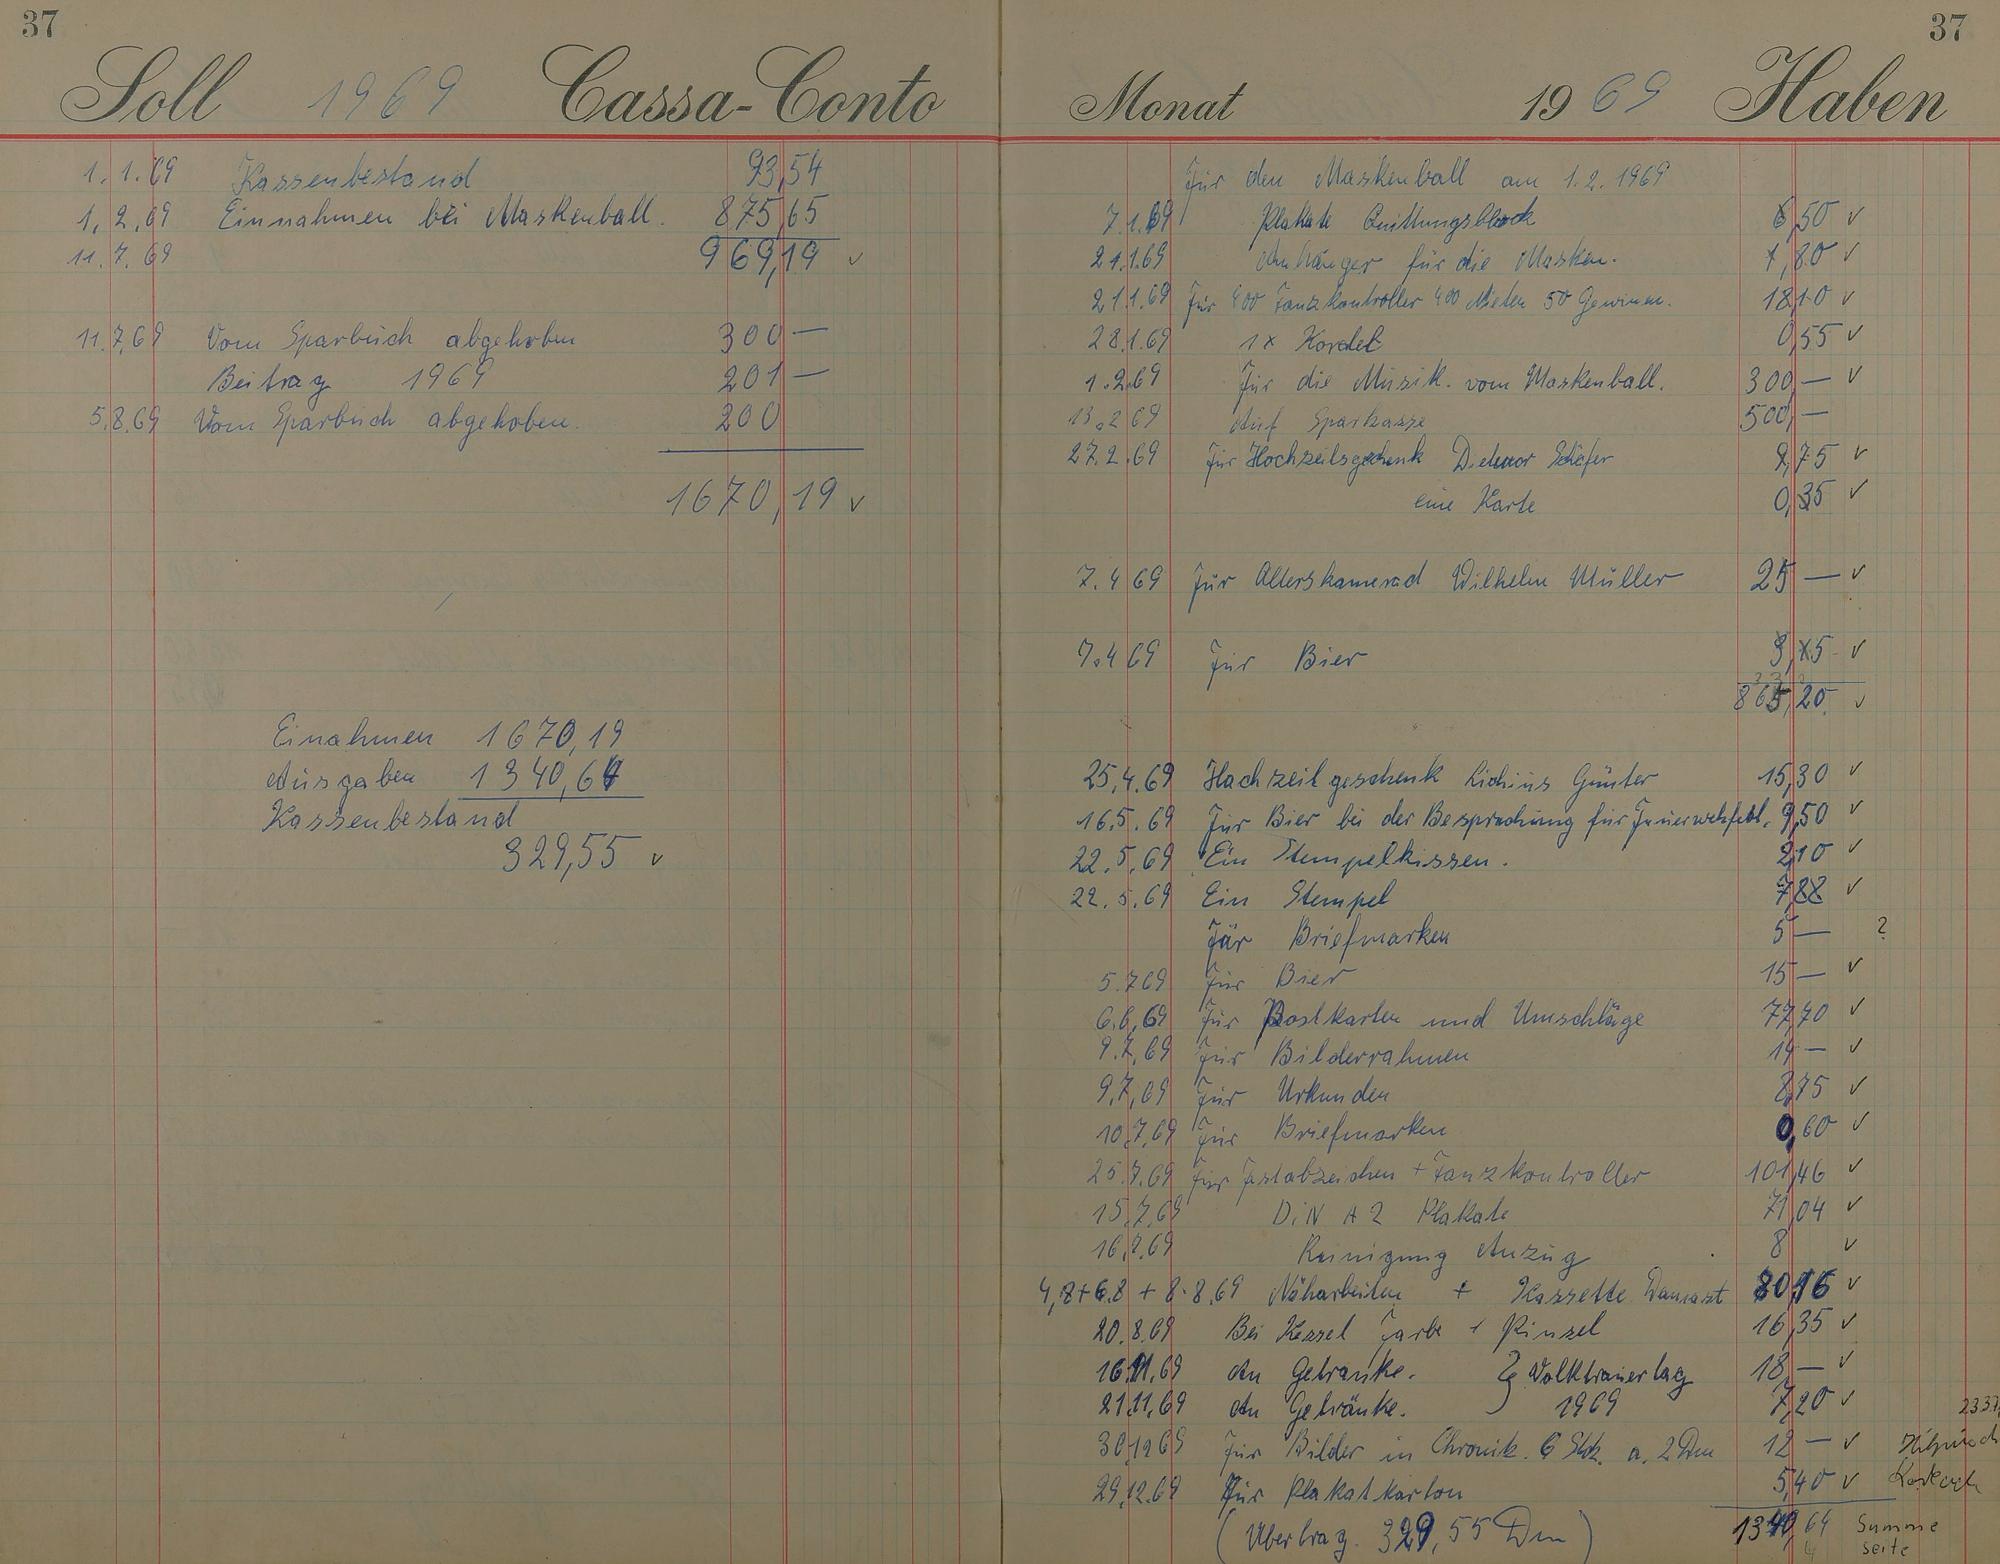 37
Soll 1969 Cassa-Conto
1.1.69 Kassenbestand 93,54
1.2.69 Einnahmen bei Maskenball. 875,65
11.7.69 969,19 v
11.7.69 Vom Sparbuch abgehoben 300 —
Beitrag 1969 201 —
5.8.69 Vom Sparbuch abgehoben. 200
1670,19 v
Einahmen 1670,19
Ausgaben 1340,64
Kassenbestand
329,55 v
37
Monat 1969 Haben
Für den Maskenball am 1.2.1969
7.1.69 Plakate Quittungsblock 6,50 v
21.1.69 Anhänger für die Masken. 1,80 v
21.1.69 Für 400 Tanzkontroller 400 Nieten 50 Gewinne. 18,10 v
28.1.69 1x Kordel 0,55 v
1.2.69 Für die Musik. vom Maskenball. 300,— v
13.2.69 Auf Sparkasse 500,—
27.2.69 Für Hochzeitsgeschenk Dietmar Schäfer 9,75 v
eine Karte 0,35 v
7.4.69 Für Alterskamerad Wilhelm Müller 25 — v
7.4.69 Für Bier v
20 v
25.4.69 Hochzeitgeschenk Günter 15,30 v
16.5.69 Für Bier bei der Besprechung für 9,50 v
22.5.69 Ein Stempelkissen. 2,10 v
22.5.69 Ein Stempel 7,88 v
Für Briefmarken 5 — ?
5.7.69 Für Bier 15 — v
6.6.69 Für Postkarten und Umschläge 77,70 v
9.7.69 Für Bilderrahmen 14 — v
9.7.69 Für Urkunden 8,75 v
10.7.69 Für Briefmarken 0,60 v
25.7.69 Für Festabzeichen + Tanzkontroller 101,46 v
15.7.69 DiN A 2 Plakate 71,04 v
16.7.69 Reinigung Anzug 8 v
4,8+6.8 + 8.8.69 Näharbeiten + Kassette Damast 80,16 v
20.8.69 Bei Kessel Farbe + Pinsel 16,35 v
16.11.69 An Getränke. } Volktrauertag 18,— v
21.11.69 An Getränke. 1969 7,20 v
30.12.69 Für Bilder in Chronik. 6 Stck. a. 2 Dm 12 — v
29.12.69 Für Plakatkarton 5,40 v
(Übertrag. 329,55 Dm) 1340,64 Summe
seite